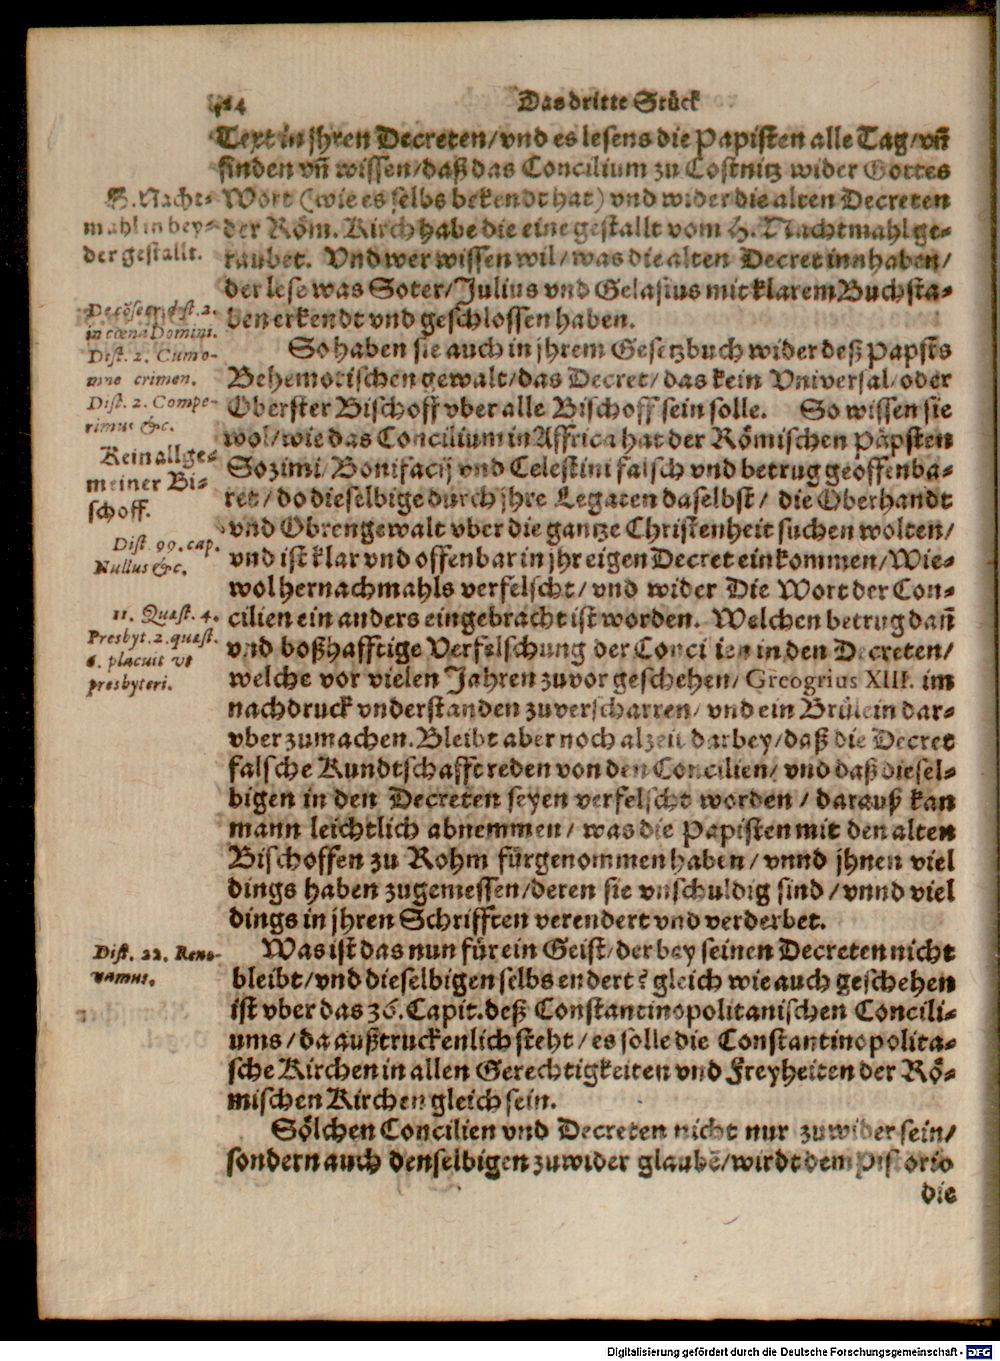 Das dritte Stück
Text in jhren Decreten/vnd es lesens die Papisten alle Tag/vñ
finden vñ wissen/daß das Concilium zu Costnitz wider Gottes
Wort (wie es selbs bekendt hat) vnd wider die alten Decreten
der Röm. Kirch habe die eine gestallt vom H. Nachtmahl ge-
raubet. Vnd wer wissen wil/was die alten Decret innhaben/
der lese was Soter/Julius vnd Gelasius mit klarem Buchsta-
ben erkendt vnd geschlossen haben.
S. Nacht-
mahl in bey-
der gestallt.
De cōsecr. dist. 2.
in cœna Domini.
Dist. 2. Cum o-
mne crimen.
Dist. 2. Compe-
rimus &c.
So haben sie auch in jhrem Gesetzbuch wider deß Papsts
Behemotischen gewalt/das Decret/das kein Vniversal/oder
Oberster Bischoff vber alle Bischoff sein solle. So wissen sie
wol/wie das Concilium in Affrica hat der Römischen Päpsten
Sozimi/Bonifacij vnd Celestini falsch vnd betrug geoffenba-
ret/do dieselbige durch jhre Legaten daselbst/ die Oberhandt
vnd Obrengewalt vber die gantze Christenheit suchen wolten/
vnd ist klar vnd offenbar in jhr eigen Decret einkommen/Wie-
wol hernachmahls verfelscht/vnd wider Die Wort der Con-
cilien ein anders eingebracht ist worden. Welchen betrug dañ
vnd boßhafftige Verfelschung der Concilien in den Decreten/
welche vor vielen Jahren zuvor geschehen/Greogrius XIII. im
nachdruck vnderstanden zuverscharren/vnd ein Brülein dar-
vber zumachen. Bleibt aber noch alzeit darbey/daß die Decret
falsche Kundtschafft reden von den Concilien/vnd daß diesel-
bigen in den Decreten seyen verfelscht worden/darauß kan
mann leichtlich abnemmen/was die Papisten mit den alten
Bischoffen zu Rohm fürgenommen haben/vnnd jhnen viel
dings haben zugemessen/deren sie vnschuldig sind/vnnd viel
dings in jhren Schrifften verendert vnd verderbet.
Kein allge-
meiner Bi-
schoff.
Dist. 99. cap.
Nullus &c.
11. Quæst. 4.
Presbyt. 2. quæst.
6. placuit vt
presbyteri.
Was ist das nun für ein Geist/der bey seinen Decreten nicht
bleibt/vnd dieselbigen selbs endert? gleich wie auch geschehen
ist vber das 36. Capit. deß Constantinopolitanischen Concili-
ums/da außtruckenlich steht/es solle die Constantinopolita-
sche Kirchen in allen Gerechtigkeiten vnd Freyheiten der Rö-
mischen Kirchen gleich sein.
Dist. 22. Reno-
vamus.
Sölchen Concilien vnd Decreten nicht nur zuwider sein/
sondern auch denselbigen zuwider glaubē/wirdt dem Pistorio
die
Digitalisierung gefördert durch die Deutsche Forschungsgemeinschaft - DFG